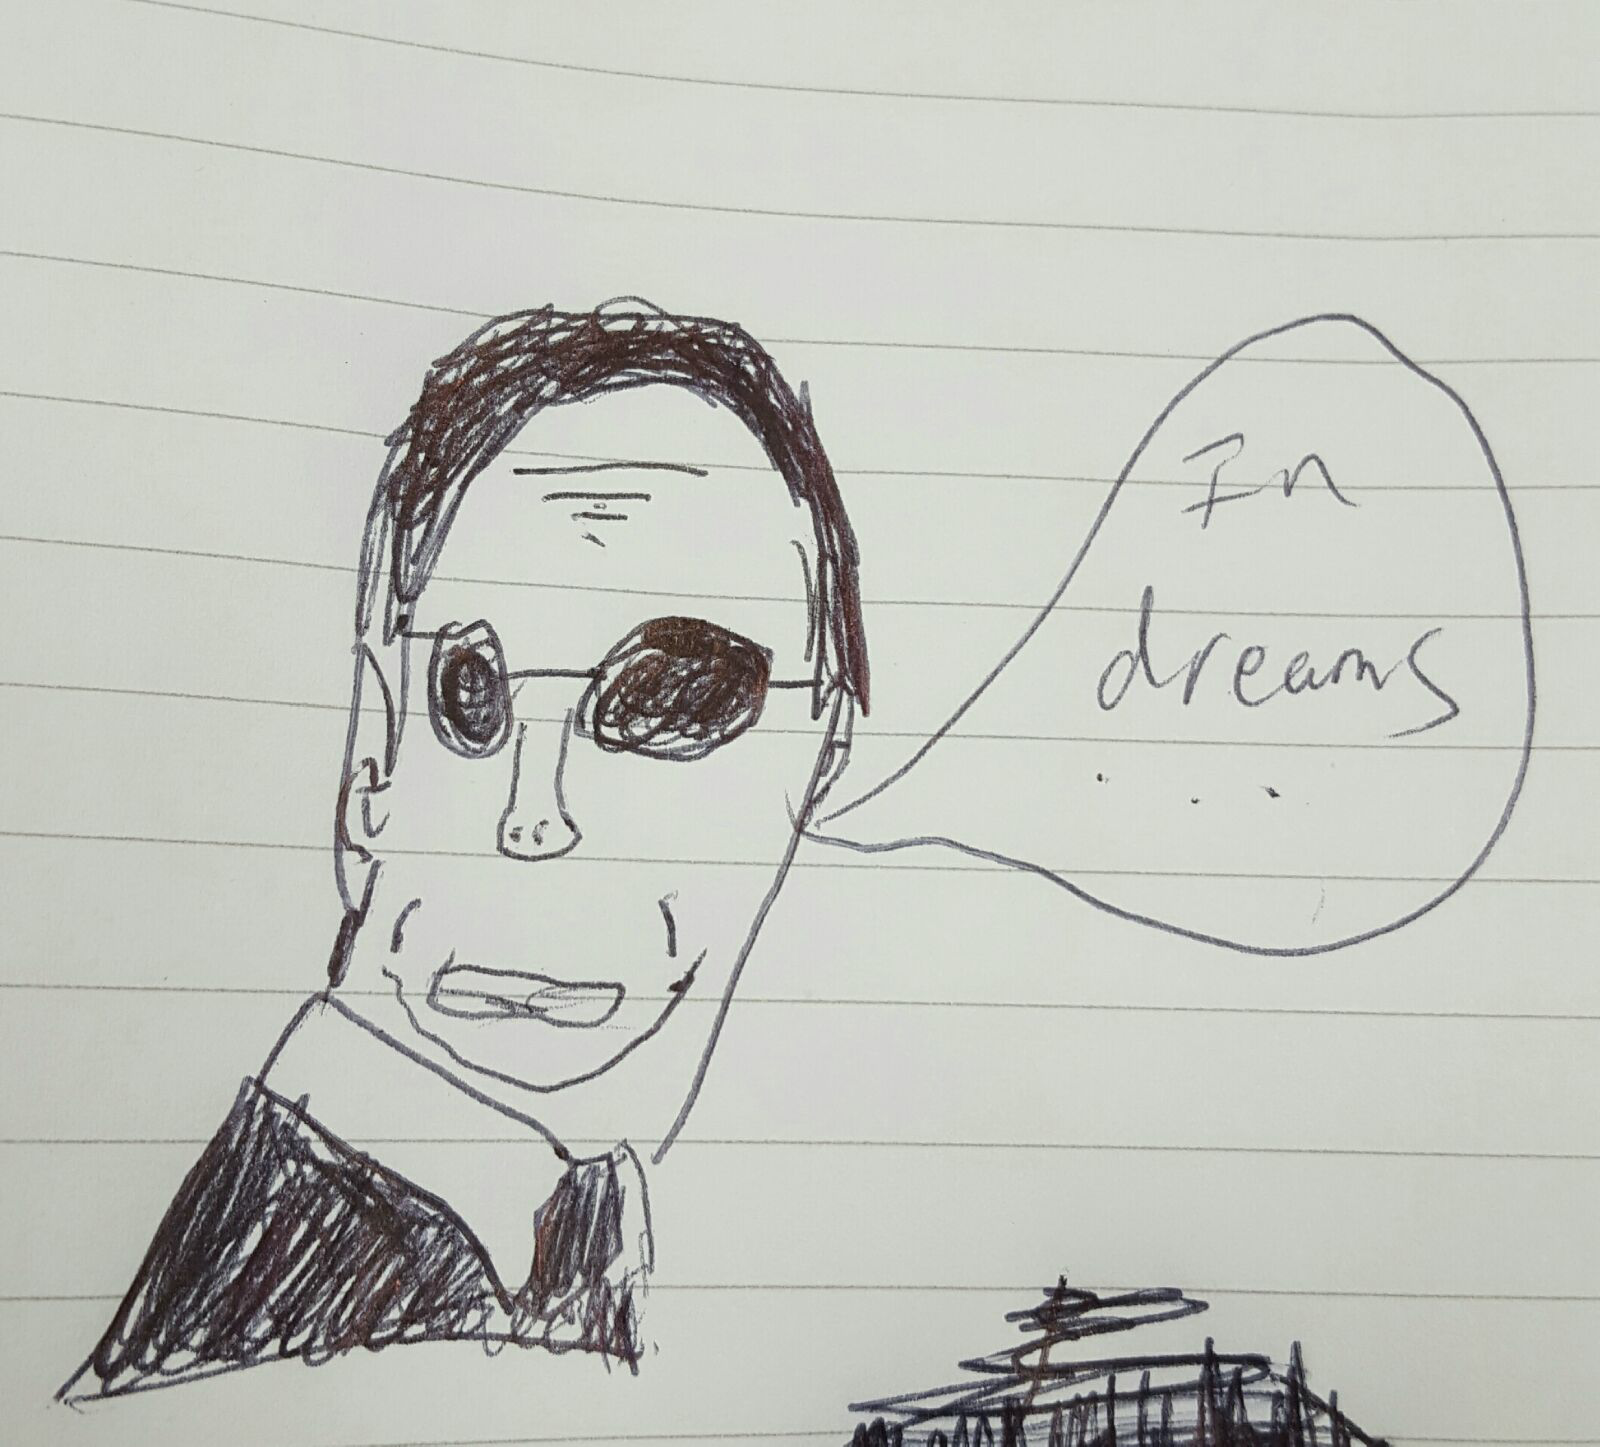 In
dreams
...